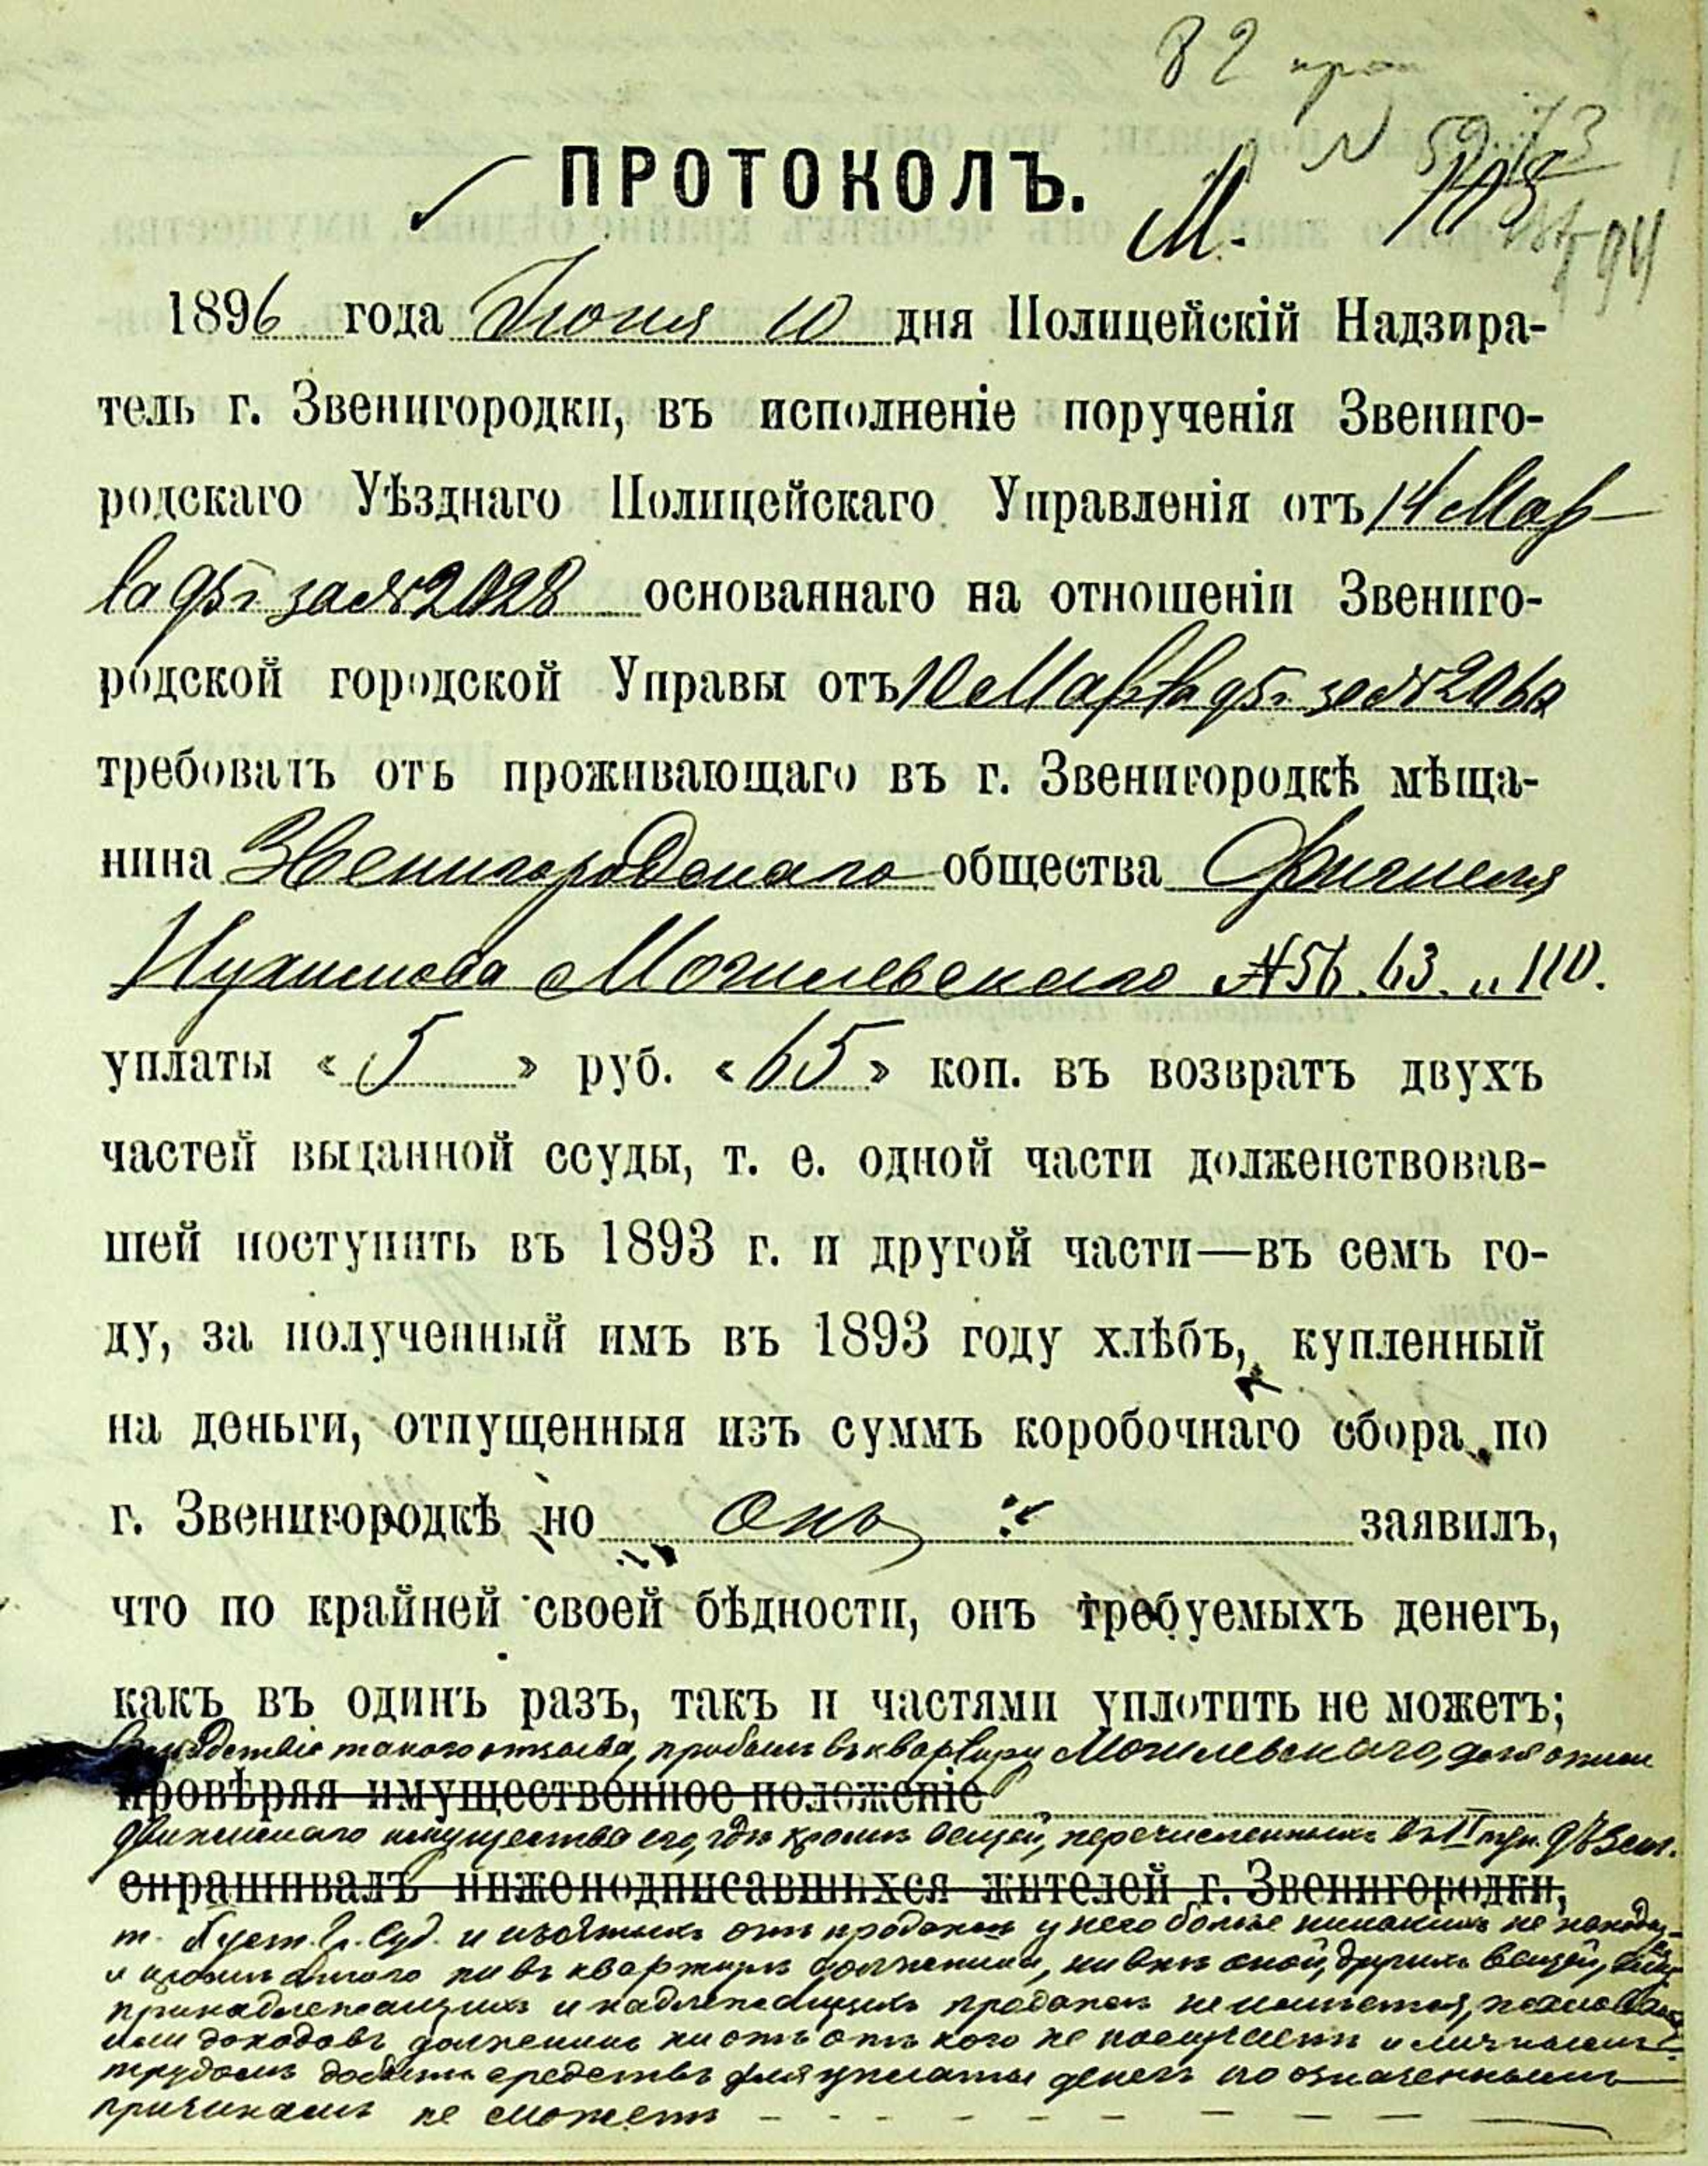 82
N 59
М.
ПРОТОКОЛЪ.
1896 года Іюня 10 дня Полицейскій Надзира-
тель г. Звенигородки, въ исполненіе порученія Звениго-
родскаго Уѣзднаго Полицейскаго Управленія отъ 14 Мар-
та 95 г за № 2028 основаннаго на отношеніи Звениго-
родской городской Управы отъ 10 Марта 95 г за №
требовать отъ проживающаго въ г. Звенигородкѣ мѣща-
нина Звенигородскаго общества Фишеля
Нухимова Могилевскаго № 56. 63. и 110.
уплаты « 5 » руб. « 65 » коп. въ возвратъ двухъ
частей выданной ссуды, т. е. одной части долженствовав-
шей поступить въ 1893 г. и другой части—въ семъ го-
ду, за полученный имъ въ 1893 году хлѣбъ, купленный
на деньги, отпущенныя изъ суммъ коробочнаго сбора по
г. Звенигородкѣ но онъ заявилъ,
что по крайней своей бѣдности, онъ требуемыхъ денегъ,
какъ въ одинъ разъ, такъ и частями уплотить не можетъ;
Вслѣдствіе такого отзыва, прибылъ въ квартиру Могилевскаго, для описи
провѣряя имущественное положеніе
движимаго имущества его, гдѣ кромѣ вещей, перечисленныхъ въ II пун. 973
спрашивалъ нижеподписавшихся жителей г. Звенигородки,
ст. Уст. Гр. Суд. и изъятыхъ отъ продажи у него болѣе никакихъ не
и кромѣ этого ни въ квартирѣ должника, ни внѣ оной, другихъ вещей, ему
принадлежащихъ и надлежащихъ продажѣ не имѣется, жалованья
или доходовъ должникъ ни отъ кого не получаетъ и личнымъ
трудомъ добыть средствъ для уплаты денегъ по означеннымъ
причинамъ не можетъ